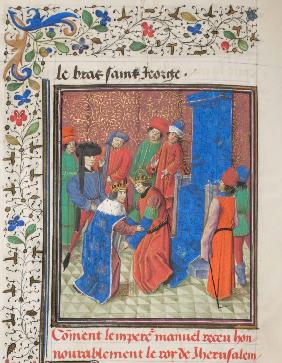 le brac saint george .
Coment lempere manuel receu hon
nourablement le roy de Jherusalem